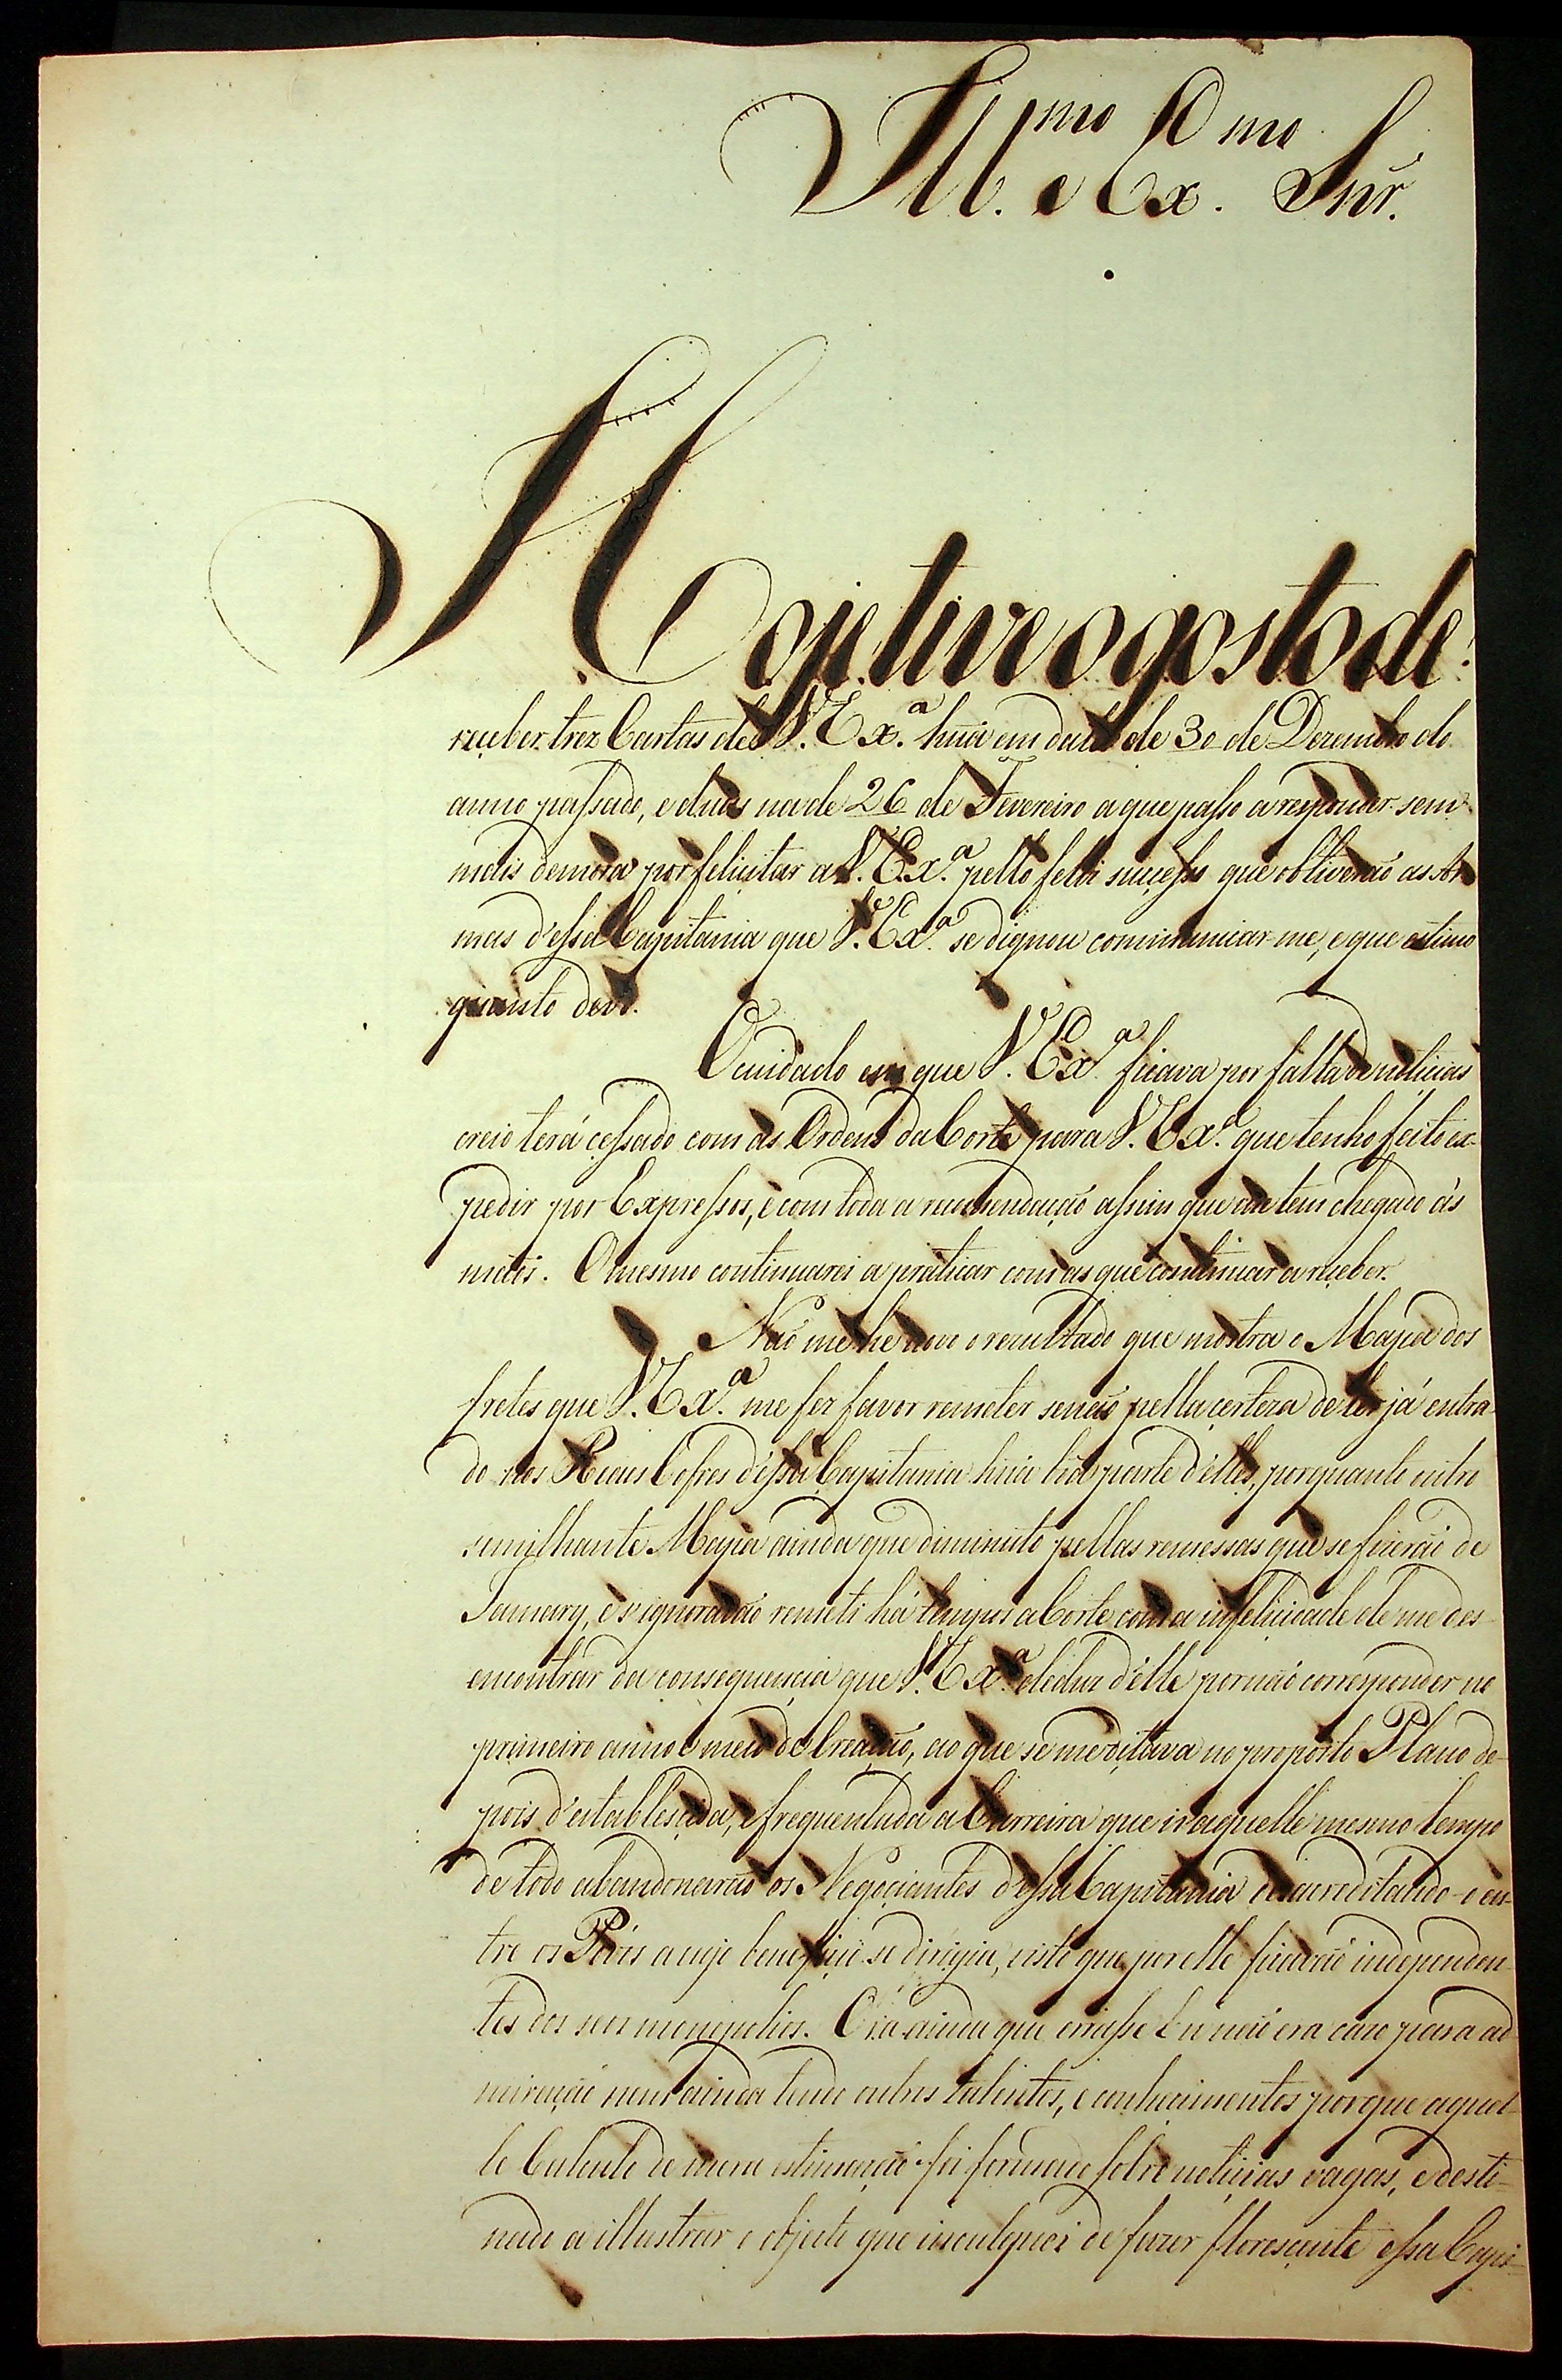 Ill.mo e Ex.mo Snr.
Hoje tive o gosto de
receber trez Cartas de V. Ex.a hũa em data de 30 de Dezembro do
anno passado, e duas na de 26 de Fevereiro a que passo a responder sem
mais demora por felicitar a V. Ex.a pello feliz sucesso que obtiverão as Ar
mas d'essa Capitania que V. Ex.a se dignou communicar-me, e que estimo
quanto devo.
O cuidado em que V. Ex.a ficava por falta de noticias
creio terá cessado com as Ordens da Corte para V. Ex.a que tenho feito ex-
pedir por Expressos, e com toda a recomendação assim que me tem chegado ás
mãos. O mesmo continuarei a praticar com as que continuar a receber.
Não me he novo o rezultado que mostra o Mapa dos
fretes que V. Ex.a me fez favor remeter senão pella certeza de ter já entra
do nos Reaes Cofres d'essa Capitania hũa boa parte d'elles, porquanto outro
semilhante Mapa ainda que diminuto pellas remessas que se fizerão de
e s'ignoravão remeti há tempos a Corte com a infelicidade de me des-
encontrar da consequencia que V. Ex.a deduz d'elle por não corresponder no
primeiro anno e meio de Creação, ao que se meditava no proposto Plano de-
pois d'establesçida, e frequentada a Carreira que n'aquelle mesmo tempo
de todo abandonarão os Negoçiantes d'essa Capitania desacreditando-o en-
tre os Póvos a cujo benefiçio se dirigia, visto que por elle ficavão independen
tes dos seos monopolios. Ora ainda que errasse Eu não era cazo para ad
miração nem ainda tendo outros talentos, e conhecimentos porque aquel-
le Calculo de mera estimação foi formado sobre notiçias vagas, e desti-
nado a illustrar o objecto que inculquei de fazer floresçente essa Capi-